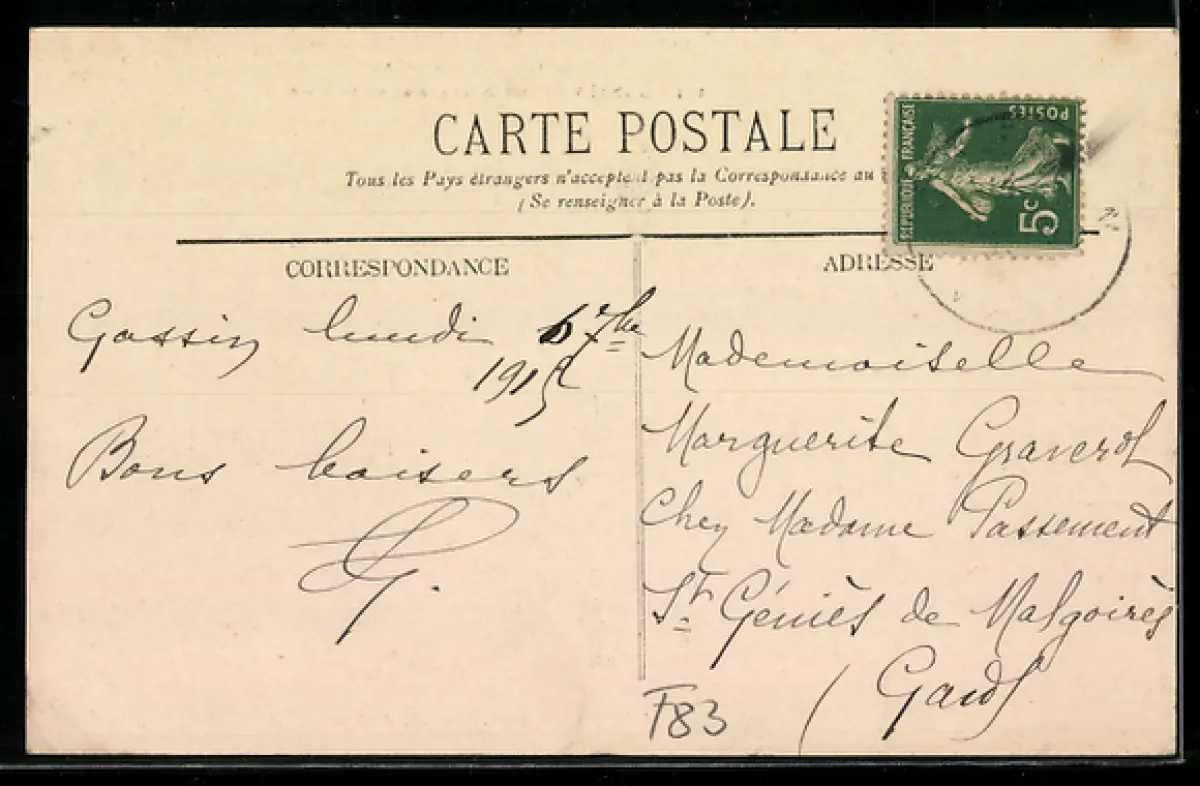 CARTE POSTALE
Tous les Pays étrangers n'acceptent pas la Correspondance au
(Se renseigner à la Poste).
RÉPUBLIQUE FRANÇAISE
POSTES
5c
CORRESPONDANCE
ADRESSE
Gassin lundi 6 7bre
191
Bons baisers
G.
Mademoiselle
Marguerite Graverol
Chez Madame Passement
St Géniès de Malgoirès
(Gard
F83